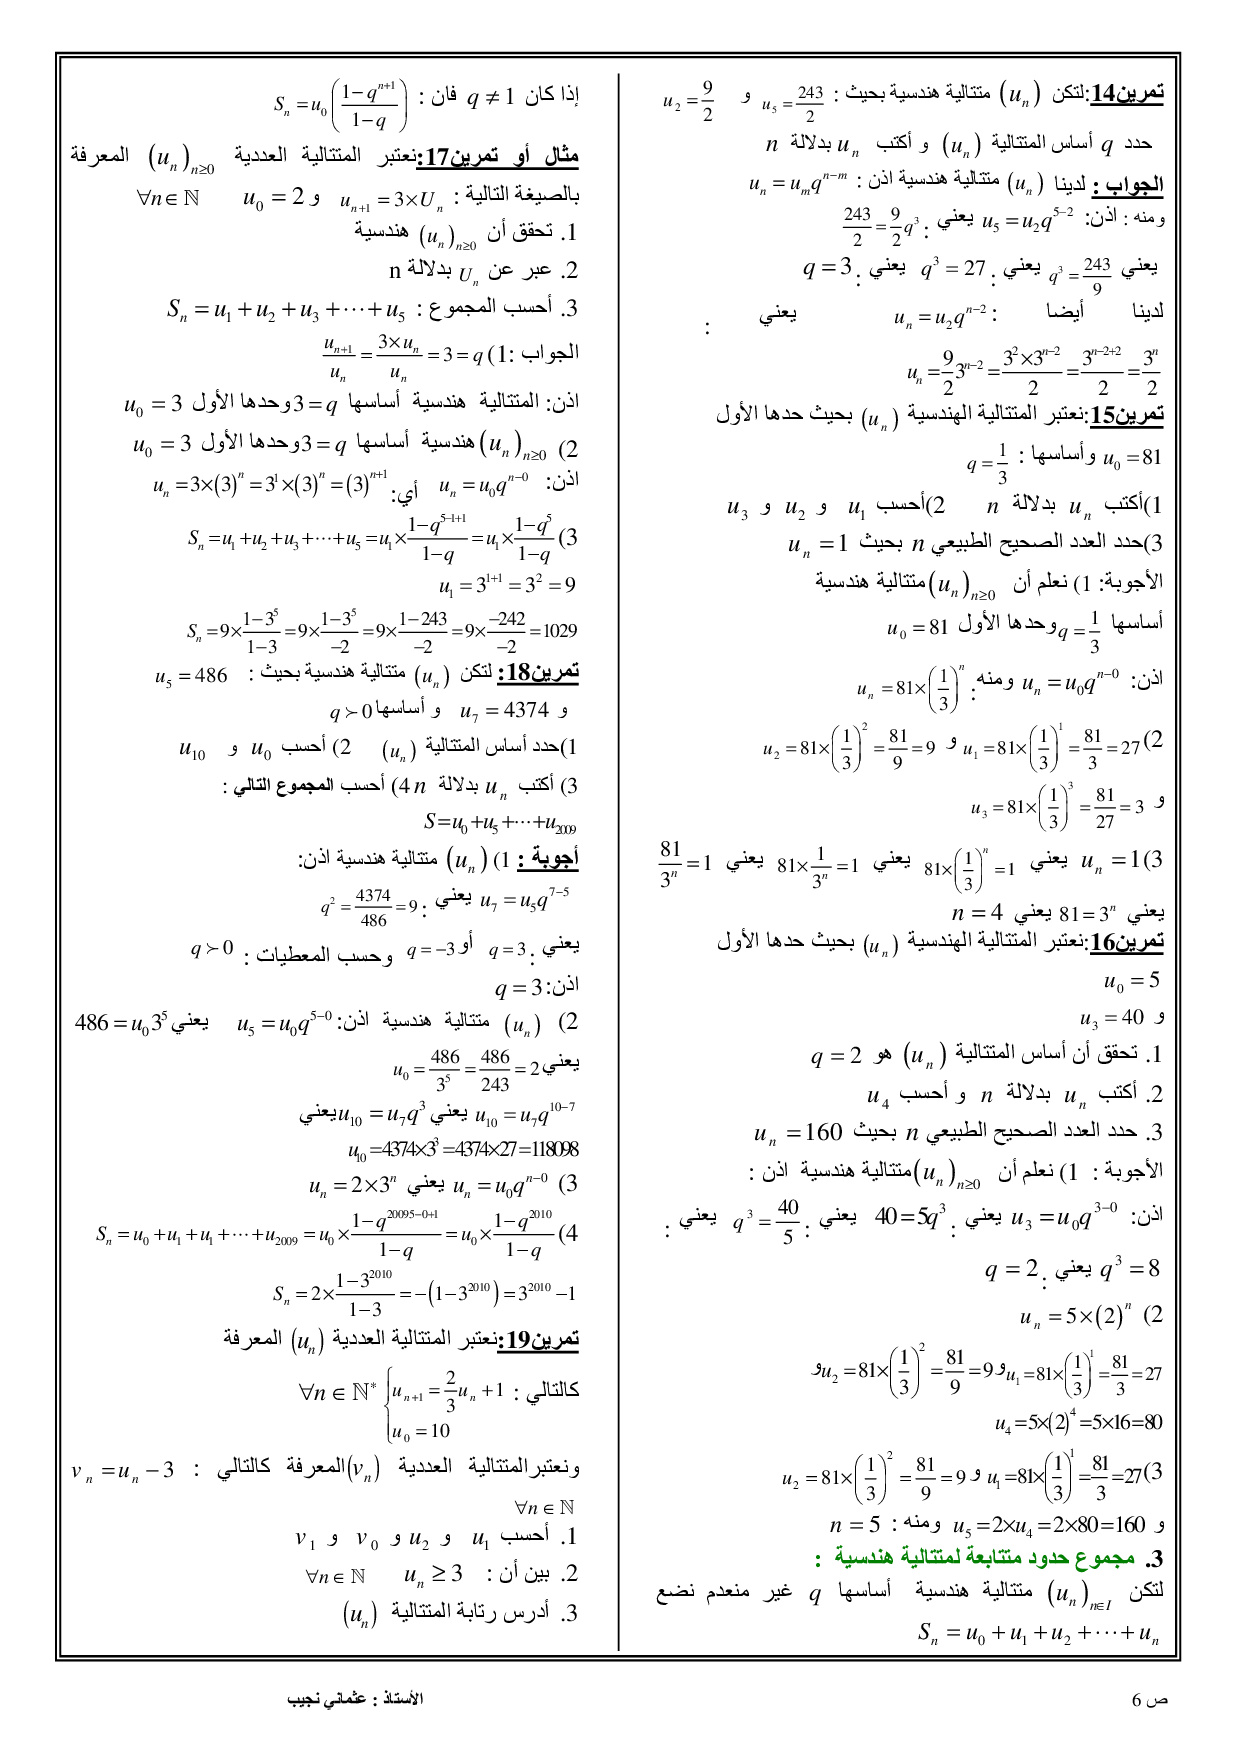 تمرين14:لتكن (u_n) متتالية هندسية بحيث : u_5 = 243/2 و u_2 = 9/2
حدد q أساس المتتالية (u_n) و أكتب u_n بدلالة n
الجواب : لدينا (u_n) متتالية هندسية اذن : u_n = u_m q^{n-m}
ومنه : اذن: u_5 = u_2 q^{5-2} يعني : 243/2 = 9/2 q^3
يعني q^3 = 243/9 يعني : q^3 = 27 يعني : q = 3
لدينا أيضا : u_n = u_2 q^{n-2} يعني :
u_n = 9/2 3^{n-2} = (3^2 × 3^{n-2})/2 = 3^{n-2+2}/2 = 3^n/2
تمرين15:نعتبر المتتالية الهندسية (u_n) بحيث حدها الأول
u_0 = 81 وأساسها : q = 1/3
1)أكتب u_n بدلالة n 2)أحسب u_1 و u_2 و u_3
3)حدد العدد الصحيح الطبيعي n بحيث u_n = 1
الأجوبة: 1) نعلم أن (u_n)_{n≥0} متتالية هندسية
أساسها q = 1/3 وحدها الأول u_0 = 81
اذن: u_n = u_0 q^{n-0} ومنه: u_n = 81×(1/3)^n
2) u_1 = 81×(1/3)^1 = 81/3 = 27 و u_2 = 81×(1/3)^2 = 81/9 = 9
و u_3 = 81×(1/3)^3 = 81/27 = 3
3) u_n = 1 يعني 81×(1/3)^n = 1 يعني 81×1/3^n = 1 يعني 81/3^n = 1
يعني 81 = 3^n يعني n = 4
تمرين16:نعتبر المتتالية الهندسية (u_n) بحيث حدها الأول
u_0 = 5
و u_3 = 40
1. تحقق أن أساس المتتالية (u_n) هو q = 2
2. أكتب u_n بدلالة n و أحسب u_4
3. حدد العدد الصحيح الطبيعي n بحيث u_n = 160
الأجوبة : 1) نعلم أن (u_n)_{n≥0} متتالية هندسية اذن :
اذن: u_3 = u_0 q^{3-0} يعني : 40 = 5q^3 يعني : q^3 = 40/5 يعني :
q^3 = 8 يعني : q = 2
2) u_n = 5×(2)^n
u_1 = 81×(1/3)^1 = 81/3 = 27 و u_2 = 81×(1/3)^2 = 81/9 = 9 و
u_4 = 5×(2)^4 = 5×16 = 80
3) u_1 = 81×(1/3)^1 = 81/3 = 27 و u_2 = 81×(1/3)^2 = 81/9 = 9
و u_5 = 2×u_4 = 2×80 = 160 ومنه : n = 5
3. مجموع حدود متتابعة لمتتالية هندسية :
لتكن (u_n)_{n∈I} متتالية هندسية أساسها q غير منعدم نضع
S_n = u_0 + u_1 + u_2 + ⋯ + u_n
إذا كان q ≠ 1 فان : S_n = u_0 ((1-q^{n+1})/(1-q))
مثال أو تمرين17:نعتبر المتتالية العددية (u_n)_{n≥0} المعرفة
بالصيغة التالية : u_{n+1} = 3×U_n و u_0 = 2 ∀n∈ℕ
1. تحقق أن (u_n)_{n≥0} هندسية
2. عبر عن U_n بدلالة n
3. أحسب المجموع : S_n = u_1 + u_2 + u_3 + ⋯ + u_5
الجواب :1) u_{n+1}/u_n = 3×u_n/u_n = 3 = q
اذن: المتتالية هندسية أساسها 3 = q وحدها الأول u_0 = 3
2) (u_n)_{n≥0} هندسية أساسها 3 = q وحدها الأول u_0 = 3
اذن: u_n = u_0 q^{n-0} أي: u_n = 3×(3)^n = 3^1×(3)^n = (3)^{n+1}
3) S_n = u_1 + u_2 + u_3 + ⋯ + u_5 = u_1 × (1-q^{5-1+1})/(1-q) = u_1 × (1-q^5)/(1-q)
u_1 = 3^{1+1} = 3^2 = 9
S_n = 9×(1-3^5)/(1-3) = 9×(1-3^5)/(-2) = 9×(1-243)/(-2) = 9×(-242)/(-2) = 1029
تمرين18: لتكن (u_n) متتالية هندسية بحيث : u_5 = 486
و u_7 = 4374 و أساسها q ≻ 0
1)حدد أساس المتتالية (u_n) 2) أحسب u_0 و u_10
3) أكتب u_n بدلالة n 4) أحسب المجموع التالي :
S = u_0 + u_5 + ⋯ + u_2009
أجوبة : 1) (u_n) متتالية هندسية اذن:
u_7 = u_5 q^{7-5} يعني : q^2 = 4374/486 = 9
يعني : q = 3 أو q = -3 وحسب المعطيات : q ≻ 0
اذن: q = 3
2) (u_n) متتالية هندسية اذن: u_5 = u_0 q^{5-0} يعني 486 = u_0 3^5
يعني u_0 = 486/3^5 = 486/243 = 2
u_10 = u_7 q^{10-7} يعني u_10 = u_7 q^3 يعني
u_10 = 4374×3^3 = 4374×27 = 118098
3) u_n = u_0 q^{n-0} يعني u_n = 2×3^n
4) S_n = u_0 + u_1 + u_1 + ⋯ + u_2009 = u_0 × (1-q^{20095-0+1})/(1-q) = u_0 × (1-q^{2010})/(1-q)
S_n = 2×(1-3^{2010})/(1-3) = -(1-3^{2010}) = 3^{2010} -1
تمرين19:نعتبر المتتالية العددية (u_n) المعرفة
كالتالي : { u_{n+1} = 2/3 u_n + 1 ; u_0 = 10 ∀n ∈ ℕ*
ونعتبرالمتتالية العددية (v_n) المعرفة كالتالي : v_n = u_n - 3
∀n ∈ ℕ
1. أحسب u_1 و u_2 و v_0 و v_1
2. بين أن : u_n ≥ 3 ∀n ∈ ℕ
3. أدرس رتابة المتتالية (u_n)
ص 6
الأستاذ : عثماني نجيب